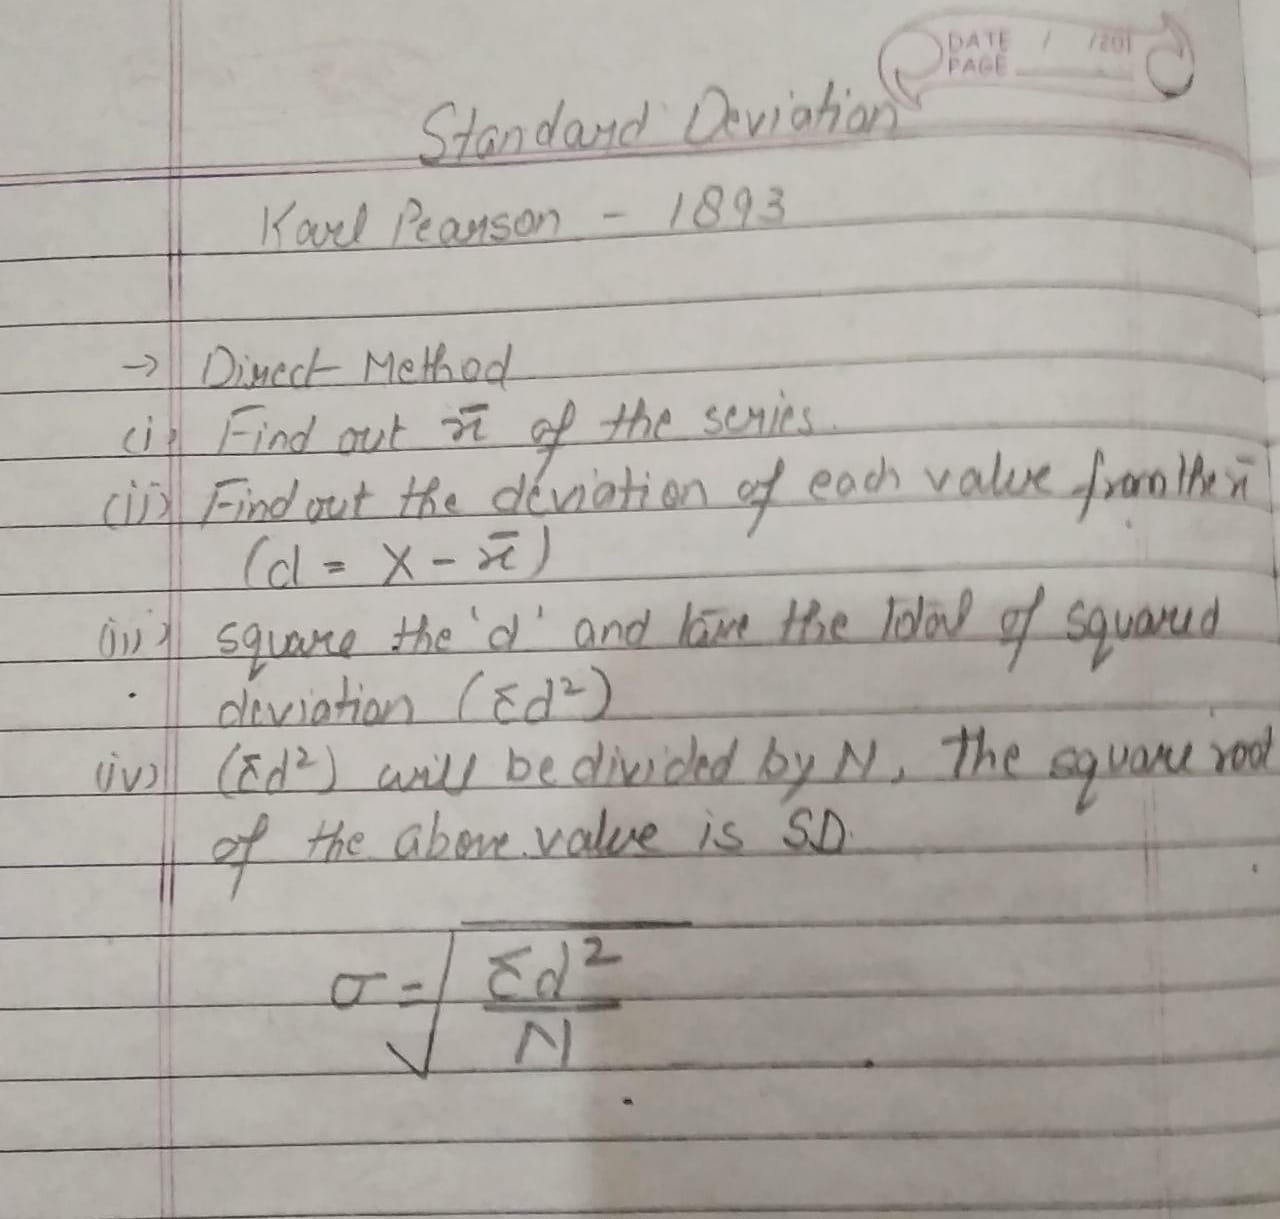 DATE / /201
PAGE
Standard Deviation
Karl Pearson - 1893
→ Direct Method
(i) Find out x̄ of the series.
(ii) Find out the deviation of each value from the x̄
(d = X - x̄)
(iii) square the 'd' and take the total of squared
deviation (Σd²)
(iv) (Σd²) will be divided by N, The square root
of the above value is SD.
σ = √Σd²/N